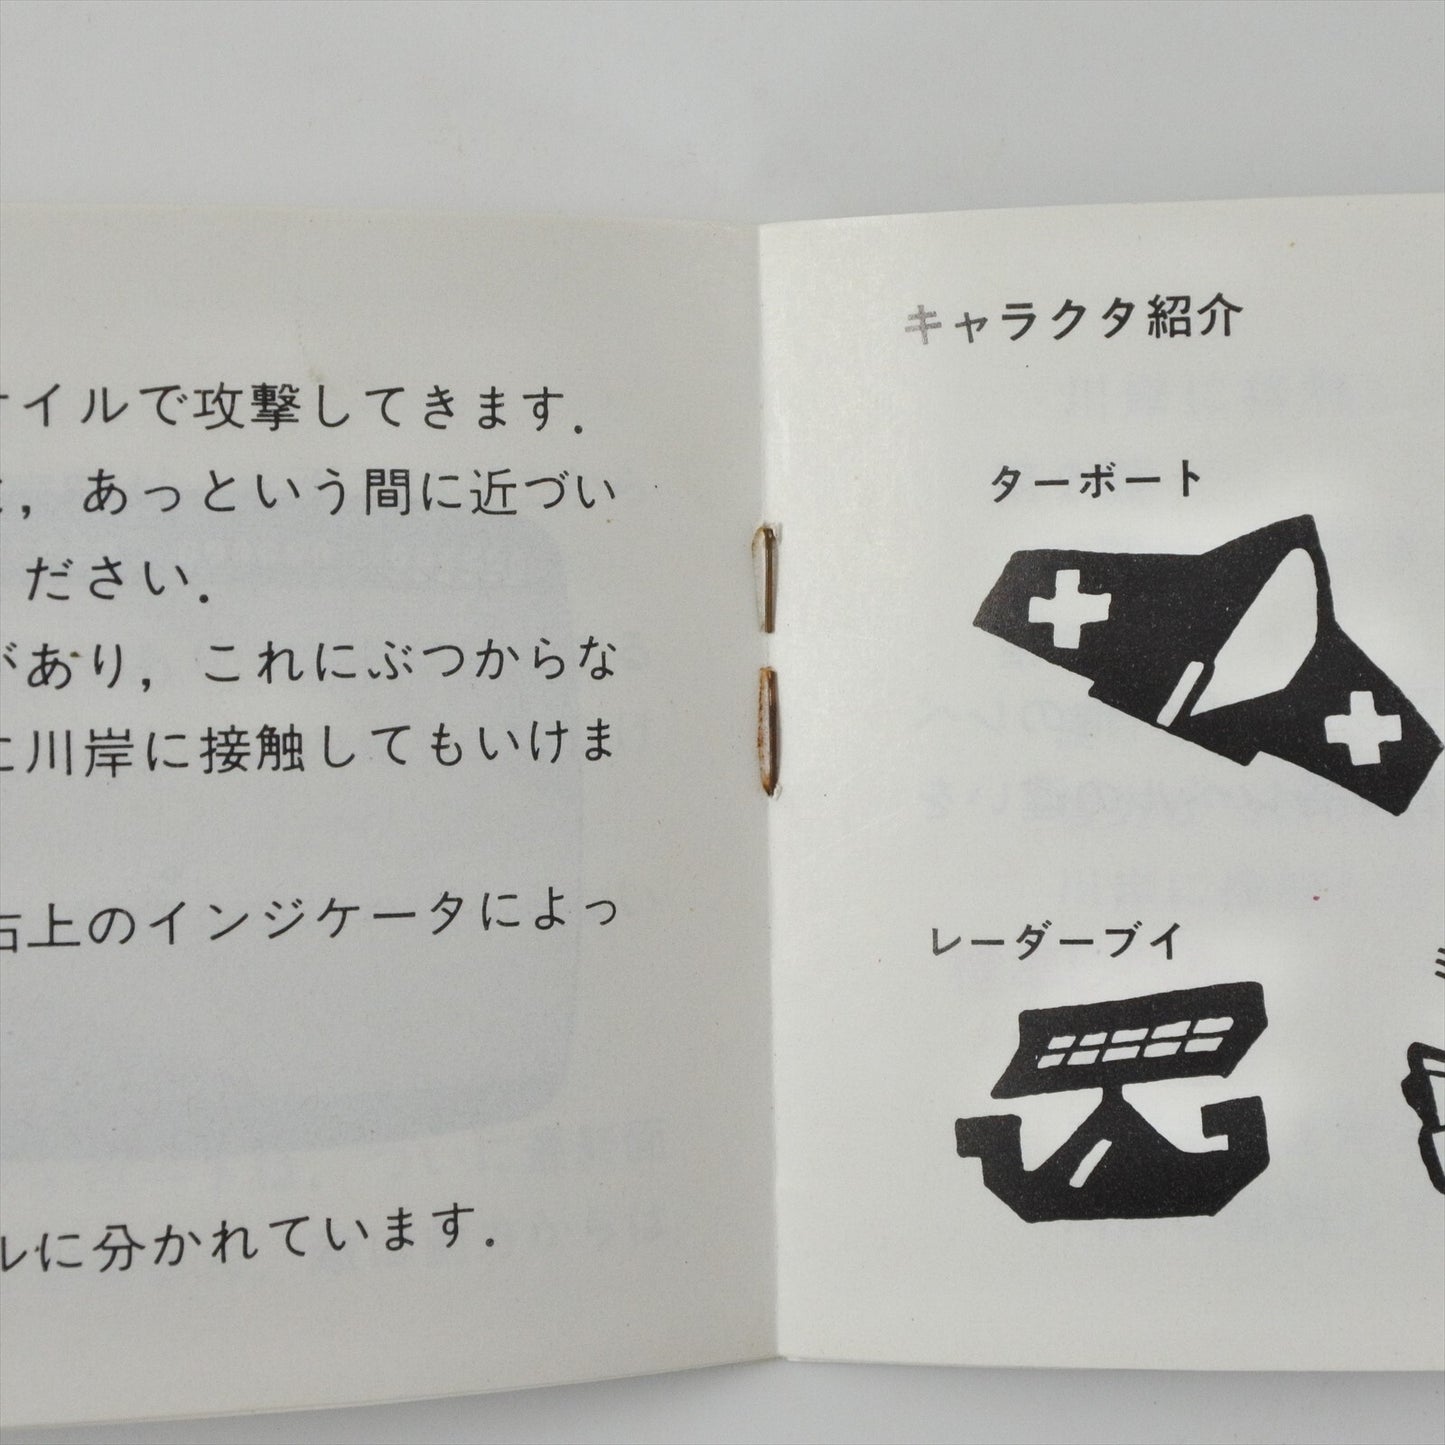 イルで攻撃してきます．
，あっという間に近づい
ださい．
があり，これにぶつからな
に川岸に接触してもいけま
右上のインジケータによっ
ルに分かれています．
キャラクタ紹介
ターボート
レーダーブイ